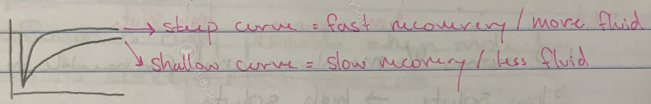 → steep curve = fast recovery / more fluid
↘ shallow curve = slow recovery / less fluid